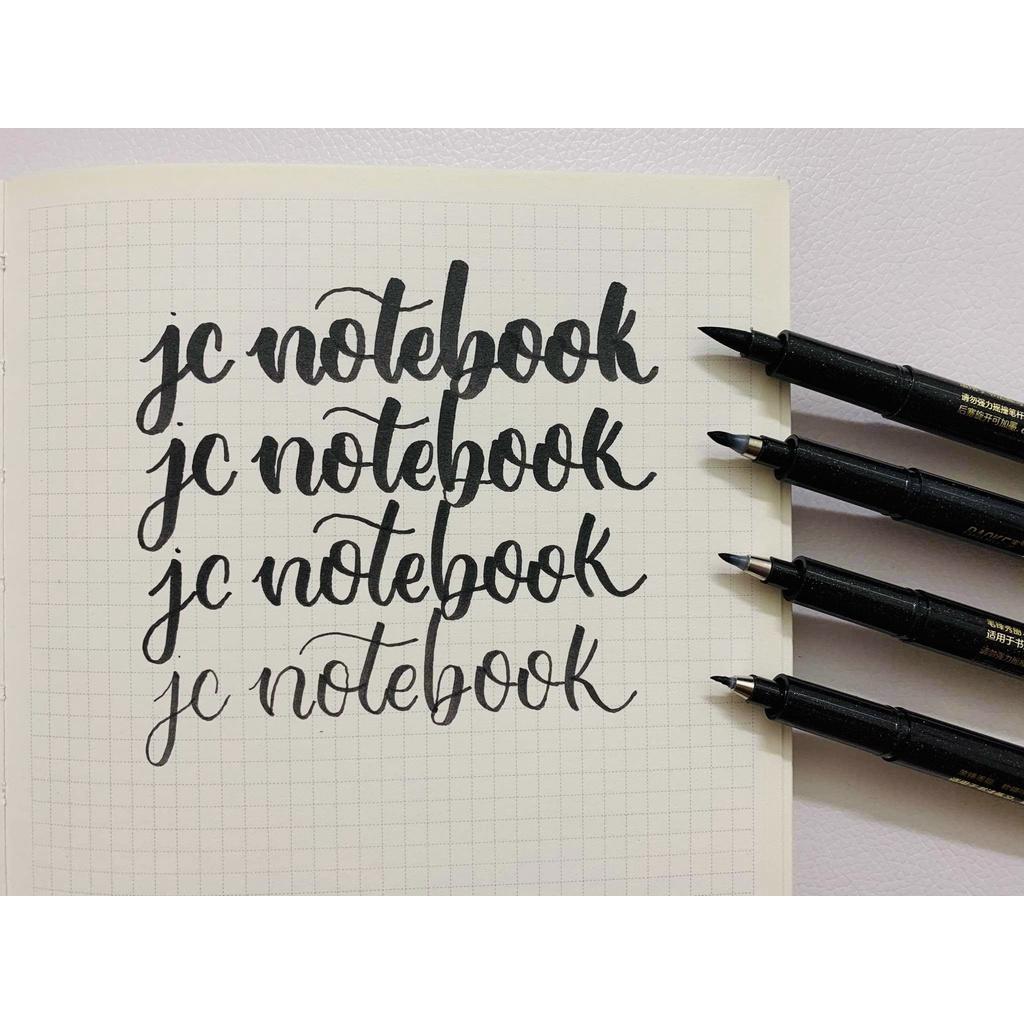 jc notebook
jc notebook
jc notebook
jc notebook
请勿强力摇撞笔杆
后塞拧开可加墨.
适用于书